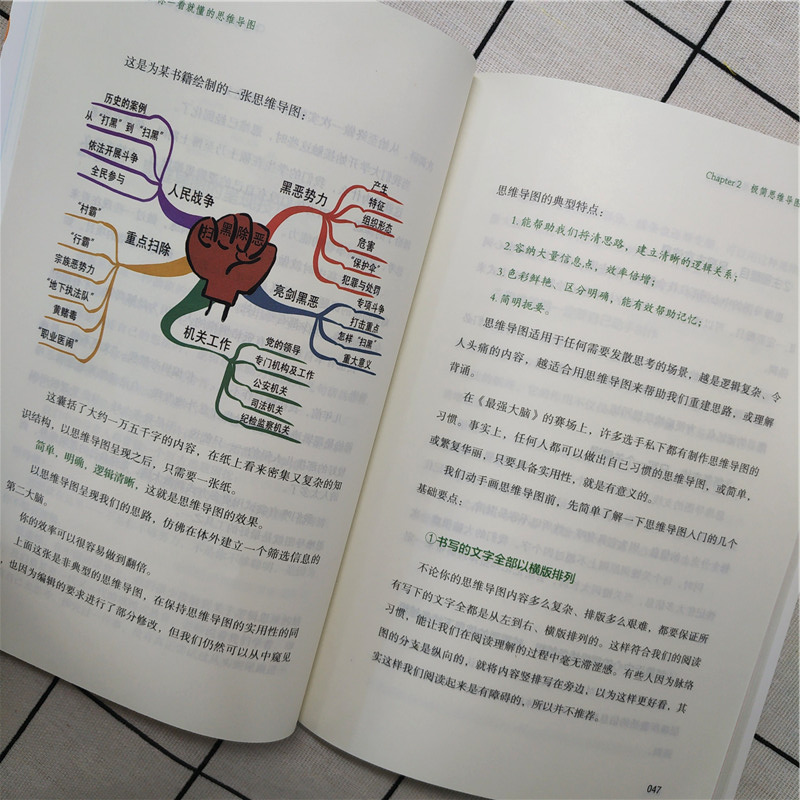 你一看就懂的思维导图
这是为某书籍绘制的一张思维导图：
历史的案例
从“打黑”到“扫黑”
依法开展斗争
全民参与
人民战争
“村霸”
“行霸”
宗族恶势力
“地下执法队”
黄赌毒
“职业医闹”
重点扫除
扫黑除恶
黑恶势力
产生
特征
组织形态
危害
“保护伞”
犯罪与处罚
亮剑黑恶
专项斗争
打击重点
怎样“扫黑”
重大意义
机关工作
党的领导
专门机构及工作
公安机关
司法机关
纪检监察机关
这囊括了大约一万五千字的内容，在纸上看来密集又复杂的知
识结构，以思维导图呈现之后，只需要一张纸。
简单，明确，逻辑清晰，这就是思维导图的效果。
以思维导图呈现我们的思路，仿佛在体外建立一个筛选信息的
第二大脑。
你的效率可以很容易做到翻倍。
上面这张是非典型的思维导图，在保持思维导图的实用性的同
，也因为编辑的要求进行了部分修改，但我们仍然可以从中窥见
Chapter 2 极简思维导图
思维导图的典型特点：
1.能帮助我们捋清思路，建立清晰的逻辑关系；
2.容纳大量信息点，效率倍增；
3.色彩鲜艳、区分明确，能有效帮助记忆；
4.简明扼要。
思维导图适用于任何需要发散思考的场景，越是逻辑复杂、令
人头痛的内容，越适合用思维导图来帮助我们重建思路，或理解
背诵。
在《最强大脑》的赛场上，许多选手私下都有制作思维导图的
习惯。事实上，任何人都可以做出自己习惯的思维导图，或简单，
或繁复华丽，只要具备实用性，就是有意义的。
我们动手画思维导图前，先简单了解一下思维导图入门的几个
基础要点：
①书写的文字全部以横版排列
不论你的思维导图内容多么复杂、排版多么艰难，都要保证所
有写下的文字全都是从左到右、横版排列的。这样符合我们的阅读
习惯，能让我们在阅读理解的过程中毫无滞涩感。有些人因为脉络
图的分支是纵向的，就将内容竖排写在旁边，以为这样更好看，其
实这样我们阅读起来是有障碍的，所以并不推荐。
047